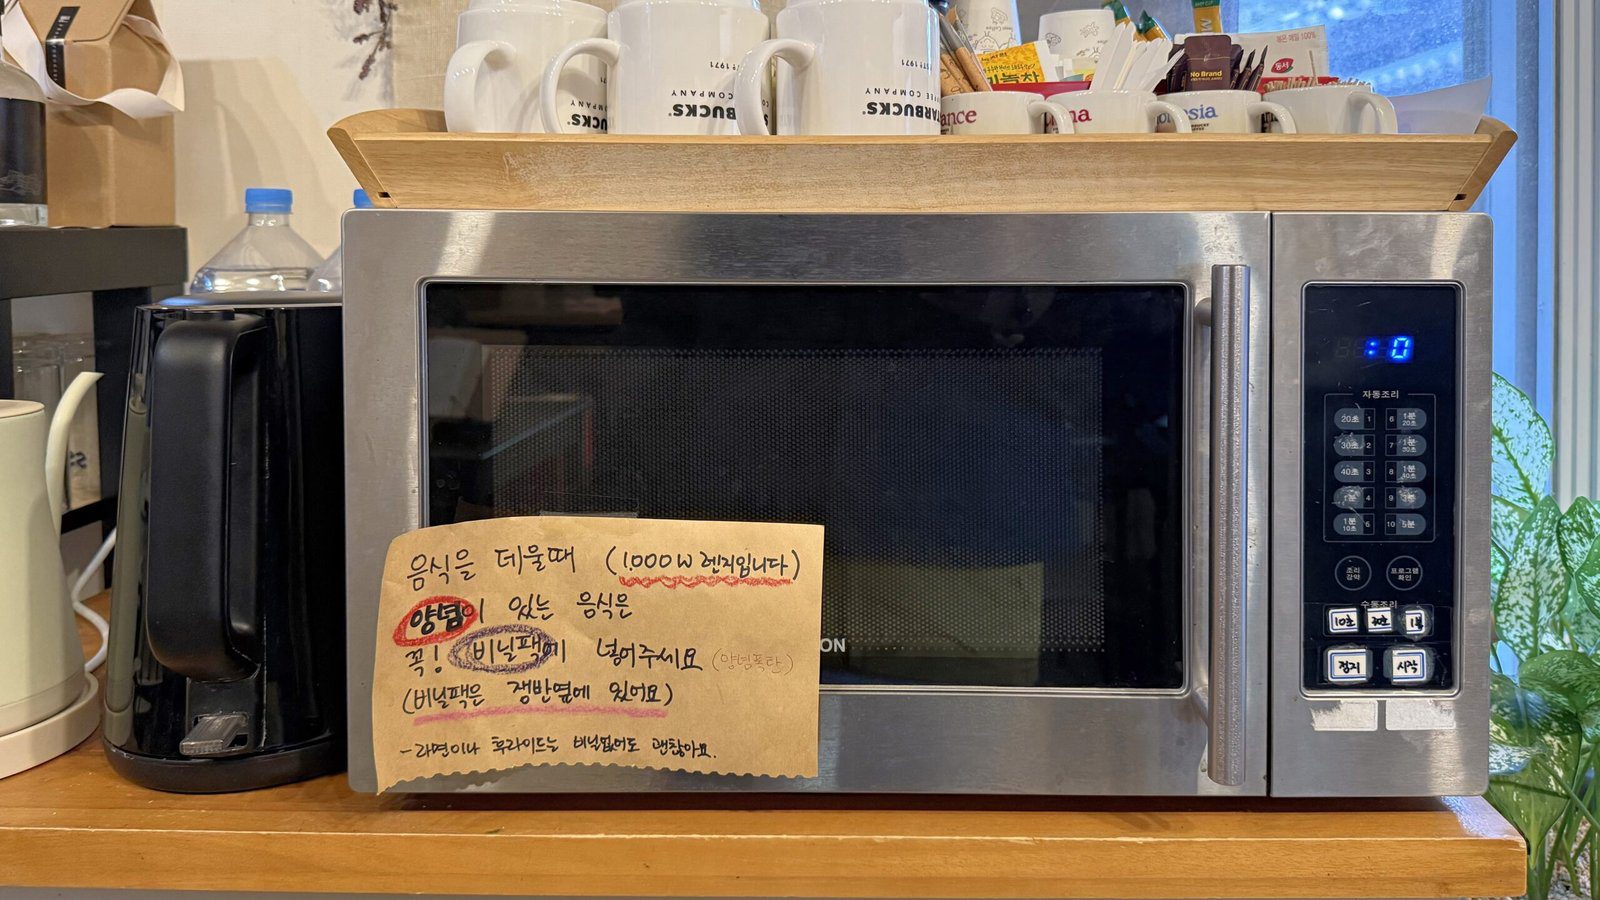 EST? 1971
COFFEE COMPANY
STARBUCKS
No Brand
볶은 메밀 100%
동서
음식을 데울때 (1.000W 렌지입니다)
양념이 있는 음식은
꼭! 비닐팩에 넣어주세요 (양념폭탄)
(비닐팩은 쟁반옆에 있어요)
- 라면이나 후라이드는 비닐없어도 괜찮아요.
ON
:0
자동조리
20초 1 6 1분 20초
30초 2 7 1분 30초
40초 3 8 1분 40초
1분 4 9
1분 10초 5 10 5분
조리 강약 프로그램 확인
수동조리
10초 1분
정지 시작